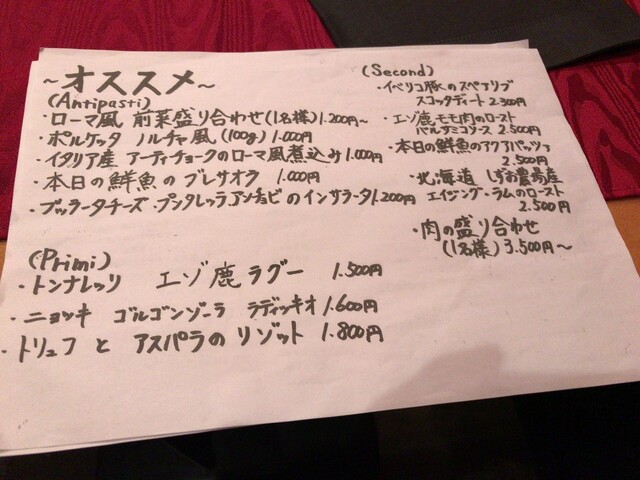 ～オススメ～
(Antipasti)
・ローマ風 前菜盛り合わせ(1名様)1.200円～
・ポルケッタ ノルチャ風(100g) 1.000円
・イタリア産 アーティチョークのローマ風煮込み 1.000円
・本日の鮮魚のブレサオラ 1.000円
・ブッラータチーズ・プンタレッラ,アンチョビのインサラータ 1.200円
(Primi)
・トンナレッリ エゾ鹿ラグー 1.500円
・ニョッキ ゴルゴンゾーラ ラディッキオ 1.600円
・トリュフと アスパラの リゾット 1.800円
(Second)
・イベリコ豚のスペアリブ
スコッタディート 2.300円
・エゾ鹿モモ肉のロースト
バルサミコソース 2.500円
・本日の鮮魚のアクアパッツァ
2.500円
・北海道 しずお農場産
エイジング・ラムのロースト
2.500円
・肉の盛り合わせ
(1名様) 3.500円～